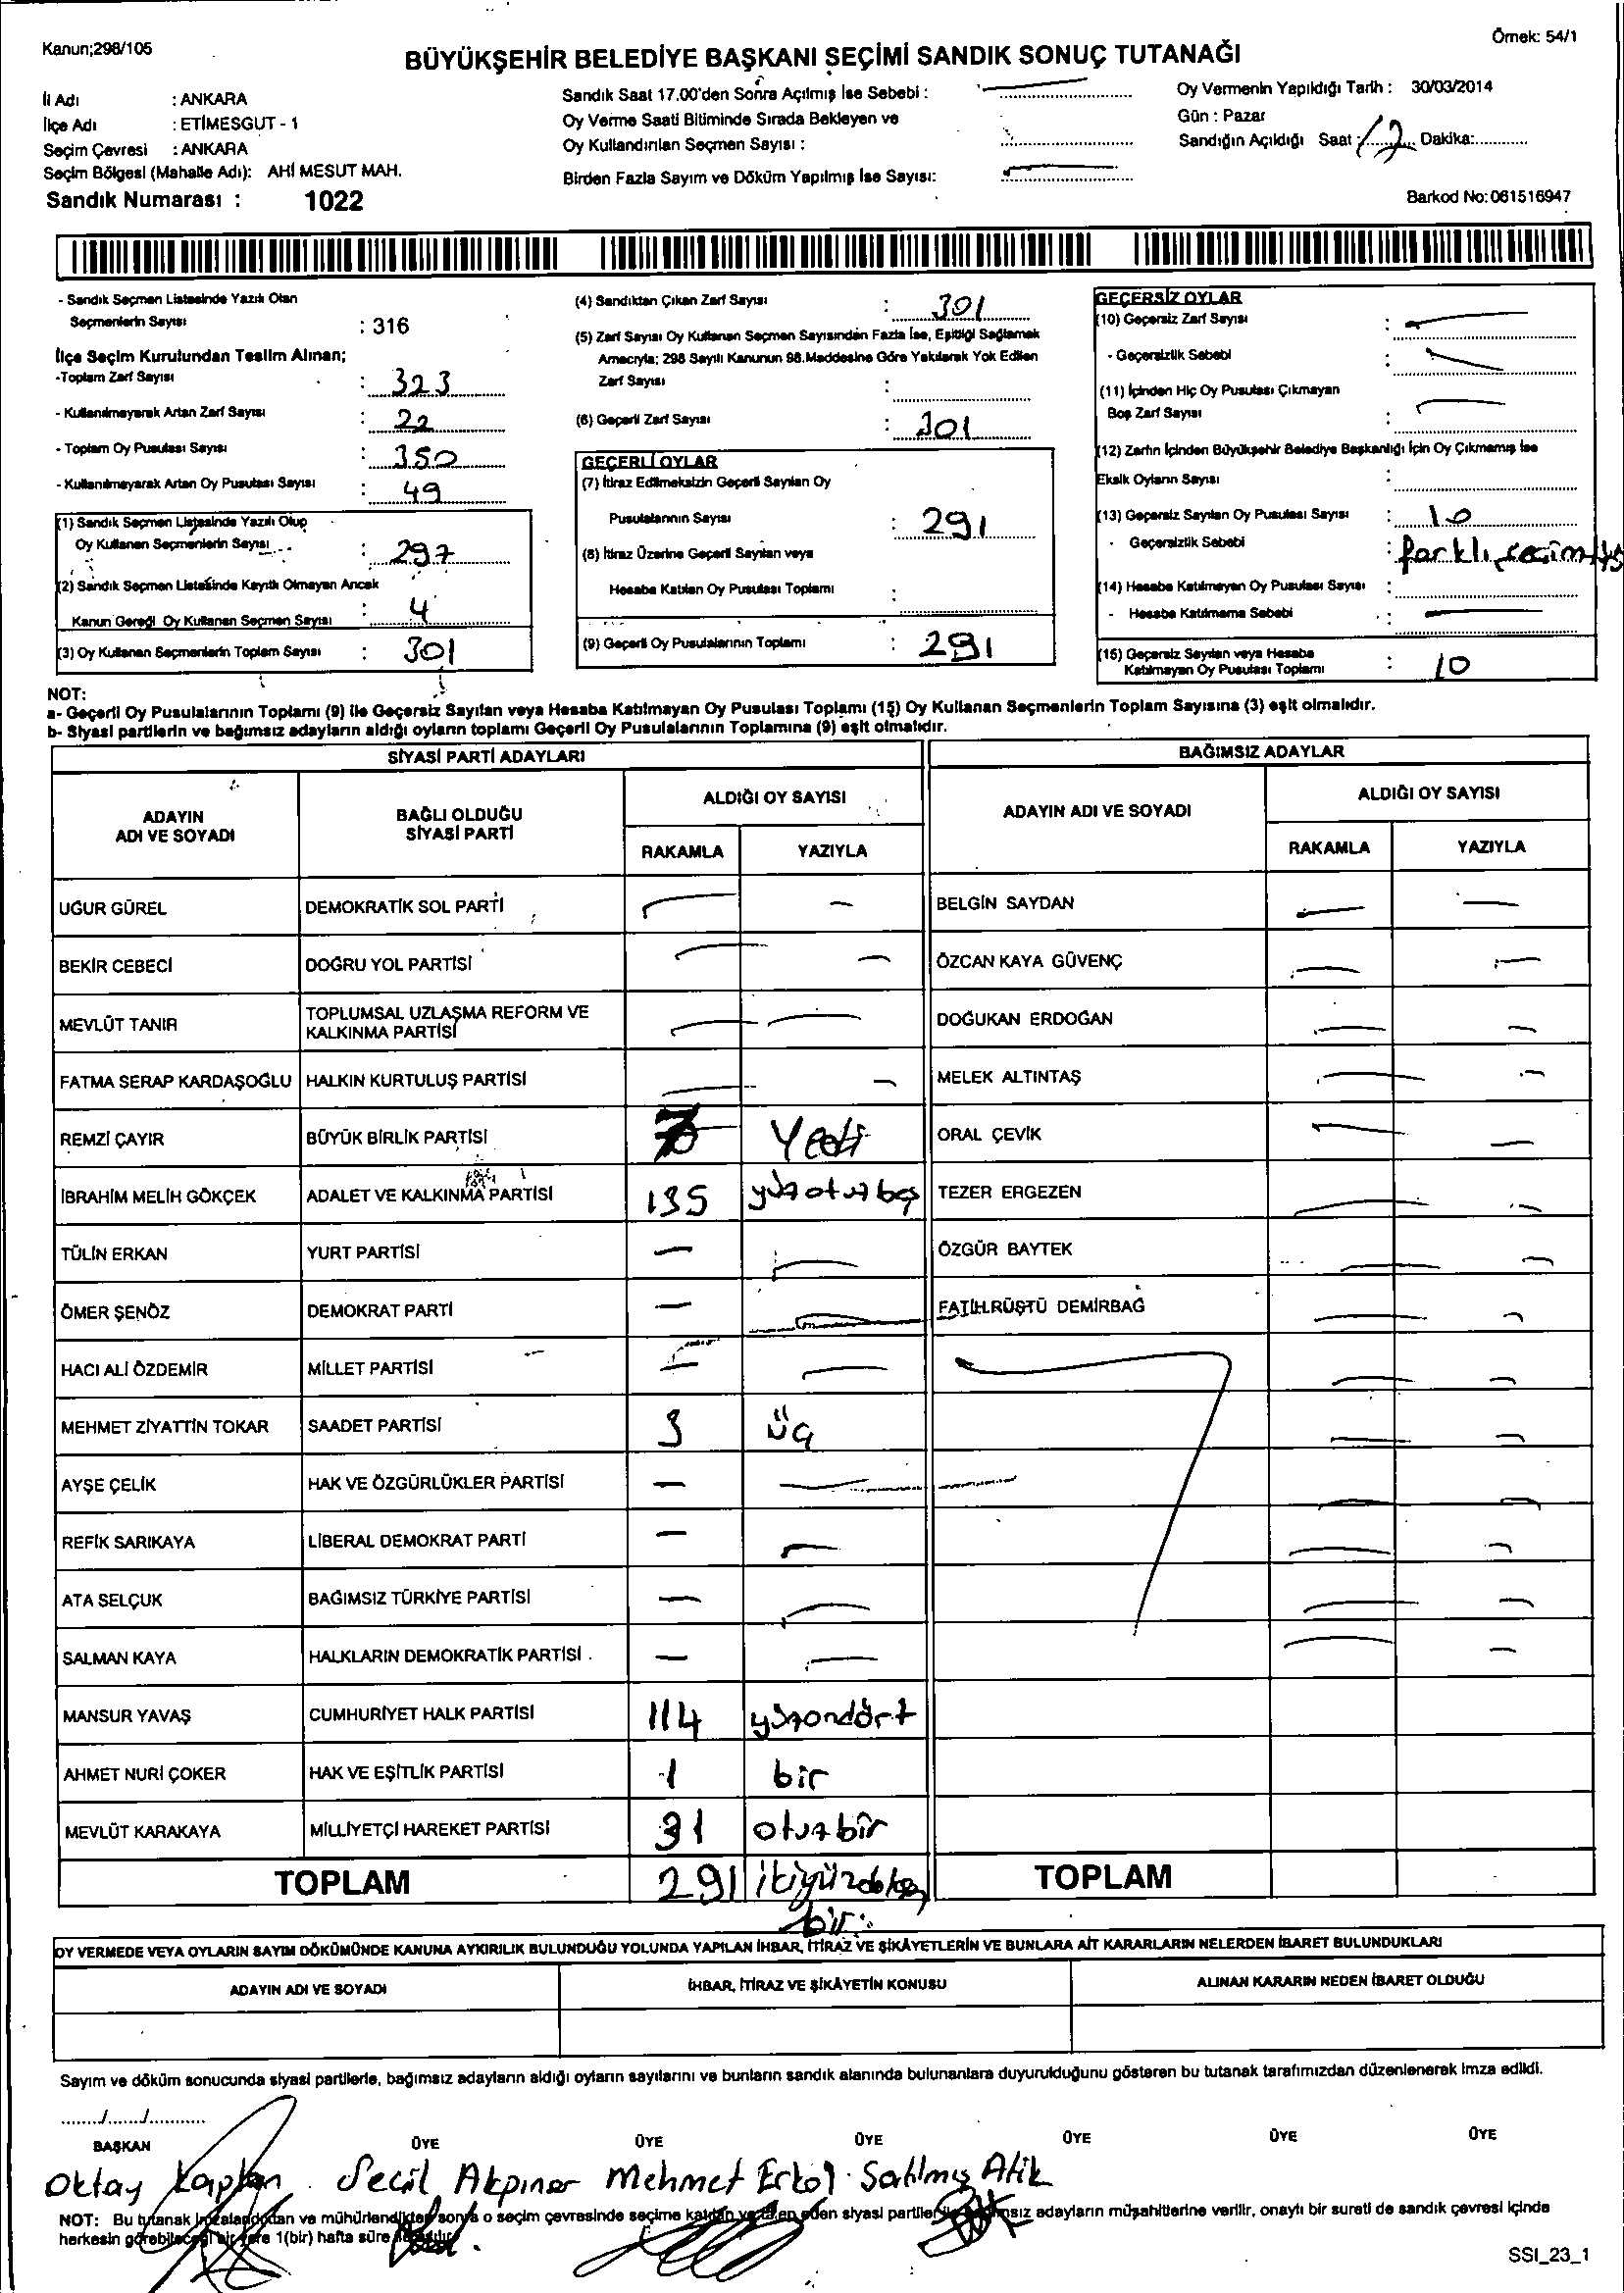 Kanun;298/105
Örnek: 54/1
BÜYÜKŞEHİR BELEDİYE BAŞKANI SEÇİMİ SANDIK SONUÇ TUTANAĞI
İl Adı : ANKARA
İlçe Adı : ETİMESGUT - 1
Seçim Çevresi : ANKARA
Seçim Bölgesi (Mahalle Adı): AHİ MESUT MAH.
Sandık Numarası : 1022
Sandık Saat 17.00'den Sonra Açılmış İse Sebebi :
Oy Verme Saati Bitiminde Sırada Bekleyen ve
Oy Kullandırılan Seçmen Sayısı :
Birden Fazla Sayım ve Döküm Yapılmış İse Sayısı:
Oy Vermenin Yapıldığı Tarih : 30/03/2014
Gün : Pazar
Sandığın Açıldığı Saat : 17 Dakika:
Barkod No:061516947
- Sandık Seçmen Listesinde Yazılı Olan
Seçmenlerin Sayısı : 316
İlçe Seçim Kurulundan Teslim Alınan;
-Toplam Zarf Sayısı : 323
- Kullanılmayarak Artan Zarf Sayısı : 22
- Toplam Oy Pusulası Sayısı : 350
- Kullanılmayarak Artan Oy Pusulası Sayısı : 49
(1) Sandık Seçmen Listesinde Yazılı Olup
Oy Kullanan Seçmenlerin Sayısı : 297
(2) Sandık Seçmen Listesinde Kayıtlı Olmayan Ancak
Kanun Gereği Oy Kullanan Seçmen Sayısı : 4
(3) Oy Kullanan Seçmenlerin Toplam Sayısı : 301
(4) Sandıktan Çıkan Zarf Sayısı : 301
(5) Zarf Sayısı Oy Kullanan Seçmen Sayısından Fazla İse, Eşitliği Sağlamak
Amacıyla; 298 Sayılı Kanunun 98.Maddesine Göre Yakılarak Yok Edilen
Zarf Sayısı :
(6) Geçerli Zarf Sayısı : 301
GEÇERLİ OYLAR
(7) İtiraz Edilmeksizin Geçerli Sayılan Oy
Pusulalarının Sayısı : 291
(8) İtiraz Üzerine Geçerli Sayılan veya
Hesaba Katılan Oy Pusulası Toplamı :
(9) Geçerli Oy Pusulalarının Toplamı : 291
GEÇERSİZ OYLAR
(10) Geçersiz Zarf Sayısı :
- Geçersizlik Sebebi :
(11) İçinden Hiç Oy Pusulası Çıkmayan
Boş Zarf Sayısı :
(12) Zarfın İçinden Büyükşehir Belediye Başkanlığı İçin Oy Çıkmamış İse
Eksik Oyların Sayısı :
(13) Geçersiz Sayılan Oy Pusulası Sayısı : 10
- Geçersizlik Sebebi : farklı
(14) Hesaba Katılmayan Oy Pusulası Sayısı :
- Hesaba Katılmama Sebebi :
(15) Geçersiz Sayılan veya Hesaba
Katılmayan Oy Pusulası Toplamı : 10
NOT:
a- Geçerli Oy Pusulalarının Toplamı (9) ile Geçersiz Sayılan veya Hesaba Katılmayan Oy Pusulası Toplamı (15) Oy Kullanan Seçmenlerin Toplam Sayısına (3) eşit olmalıdır.
b- Siyasi partilerin ve bağımsız adayların aldığı oyların toplamı Geçerli Oy Pusulalarının Toplamına (9) eşit olmalıdır.
SİYASİ PARTİ ADAYLARI
BAĞIMSIZ ADAYLAR
ADAYIN
ADI VE SOYADI
BAĞLI OLDUĞU
SİYASİ PARTİ
ALDIĞI OY SAYISI
RAKAMLA YAZIYLA
ADAYIN ADI VE SOYADI
ALDIĞI OY SAYISI
RAKAMLA YAZIYLA
UĞUR GÜREL DEMOKRATİK SOL PARTİ — — BELGİN SAYDAN — —
BEKİR CEBECİ DOĞRU YOL PARTİSİ — — ÖZCAN KAYA GÜVENÇ — —
MEVLÜT TANIR TOPLUMSAL UZLAŞMA REFORM VE
KALKINMA PARTİSİ — — DOĞUKAN ERDOĞAN — —
FATMA SERAP KARDAŞOĞLU HALKIN KURTULUŞ PARTİSİ — — MELEK ALTINTAŞ — —
REMZİ ÇAYIR BÜYÜK BİRLİK PARTİSİ 7 Yedi ORAL ÇEVİK — —
İBRAHİM MELİH GÖKÇEK ADALET VE KALKINMA PARTİSİ 135 yüzotuzbeş TEZER ERGEZEN — —
TÜLİN ERKAN YURT PARTİSİ — — ÖZGÜR BAYTEK — —
ÖMER ŞENÖZ DEMOKRAT PARTİ — — FATİH RÜŞTÜ DEMİRBAĞ — —
HACI ALİ ÖZDEMİR MİLLET PARTİSİ — — — —
MEHMET ZİYATTİN TOKAR SAADET PARTİSİ 3 üç — —
AYŞE ÇELİK HAK VE ÖZGÜRLÜKLER PARTİSİ — — — —
REFİK SARIKAYA LİBERAL DEMOKRAT PARTİ — — — —
ATA SELÇUK BAĞIMSIZ TÜRKİYE PARTİSİ — — — —
SALMAN KAYA HALKLARIN DEMOKRATİK PARTİSİ — — — —
MANSUR YAVAŞ CUMHURİYET HALK PARTİSİ 114 yüzondört
AHMET NURİ ÇOKER HAK VE EŞİTLİK PARTİSİ 1 bir
MEVLÜT KARAKAYA MİLLİYETÇİ HAREKET PARTİSİ 31 otuzbir
TOPLAM 291 ikiyüzdoksan
bir
TOPLAM
OY VERMEDE VEYA OYLARIN SAYIM DÖKÜMÜNDE KANUNA AYKIRILIK BULUNDUĞU YOLUNDA YAPILAN İHBAR, İTİRAZ VE ŞİKÂYETLERİN VE BUNLARA AİT KARARLARIN NELERDEN İBARET BULUNDUKLARI
ADAYIN ADI VE SOYADI İHBAR, İTİRAZ VE ŞİKÂYETİN KONUSU ALINAN KARARIN NEDEN İBARET OLDUĞU
Sayım ve döküm sonucunda siyasi partilerle, bağımsız adayların aldığı oyların sayılarını ve bunların sandık alanında bulunanlara duyurulduğunu gösteren bu tutanak tarafımızdan düzenlenerek imza edildi.
......./......./...........
BAŞKAN ÜYE ÜYE ÜYE ÜYE ÜYE ÜYE
Oktay Kaplan Seçil Akpınar Mehmet Erkol Satılmış Atik
NOT: Bu tutanak imzalandıktan ve mühürlendikten sonra o seçim çevresinde seçime katılan ve talep eden siyasi partiler ile bağımsız adayların müşahitlerine verilir, onaylı bir sureti de sandık çevresi içinde
herkesin görebileceği bir yere 1(bir) hafta süre ile asılır.
SSI_23_1